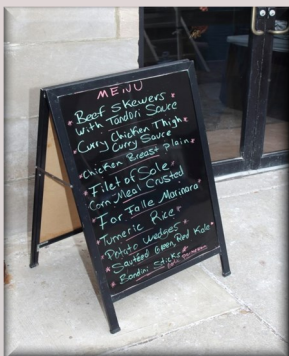 MENU
* Beef Skewers
with Tandori Sauce
* Curry Chicken Thigh *
Curry Sauce
* Chicken Breast plain *
* Filet of Sole *
Corn Meal Crusted
* Far Falle Marinara *
* Turneric Rice *
* Potato wedges *
* Sauteed Green, Red Kale *
* Bondini Sticks *